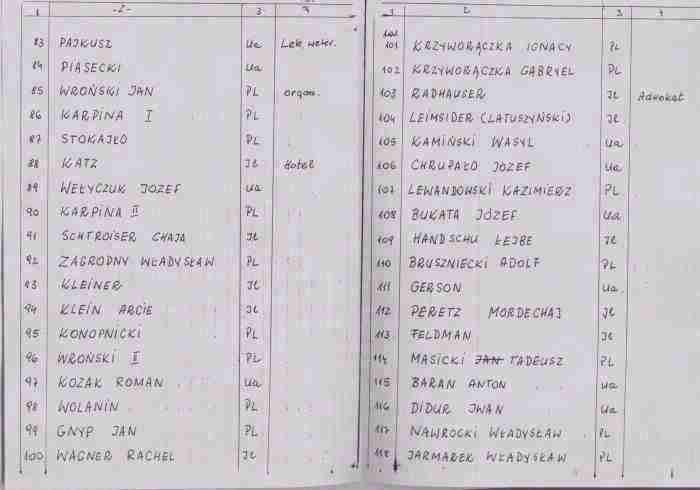 1 -2- 3 4
83 PAJKUSZ Ua Lek. weter.
84 PIASECKI Ua
85 WROŃSKI JAN PL organ.
86 KARPINA I PL
87 STOKAJŁO PL
88 KATZ Jz Hotel
89 WEŁYCZUK JOZEF Ua
90 KARPINA II PL
91 SCHTROISER CHAJA Jz
92 ZAGRODNY WŁADYSŁAW PL
93 KLEINER Jz
94 KLEIN ARCIE Jz
95 KONOPNICKI PL
96 WROŃSKI II PL
97 KOZAK ROMAN Ua
98 WOLANIN PL
99 GNYP JAN PL
100 WAGNER RACHEL Jz
1 2 3 4
101 KRZYWORĄCZKA IGNACY PL
102 KRZYWORĄCZKA GABRYEL PL
103 RADHAUSER Jz Adwokat
104 LEIMSIDER (LATUSZYŃSKI) Jz
105 KAMIŃSKI WASYL Ua
106 CHRUPAŁO JÓZEF Ua
107 LEWANDOWSKI KAZIMIERZ PL
108 BUKATA JÓZEF Ua
109 HANDSCHU LEJBE Jz
110 BRUSZNIECKI ADOLF PL
111 GERSON Ua
112 PERETZ MORDECHAJ Jz
113 FELDMAN Jz
114 MASICKI JAN TADEUSZ PL
115 BARAN ANTON Ua
116 DIDUR JWAN Ua
117 NAWROCKI WŁADYSŁAW PL
118 JARMAREK WŁADYSŁAW PL